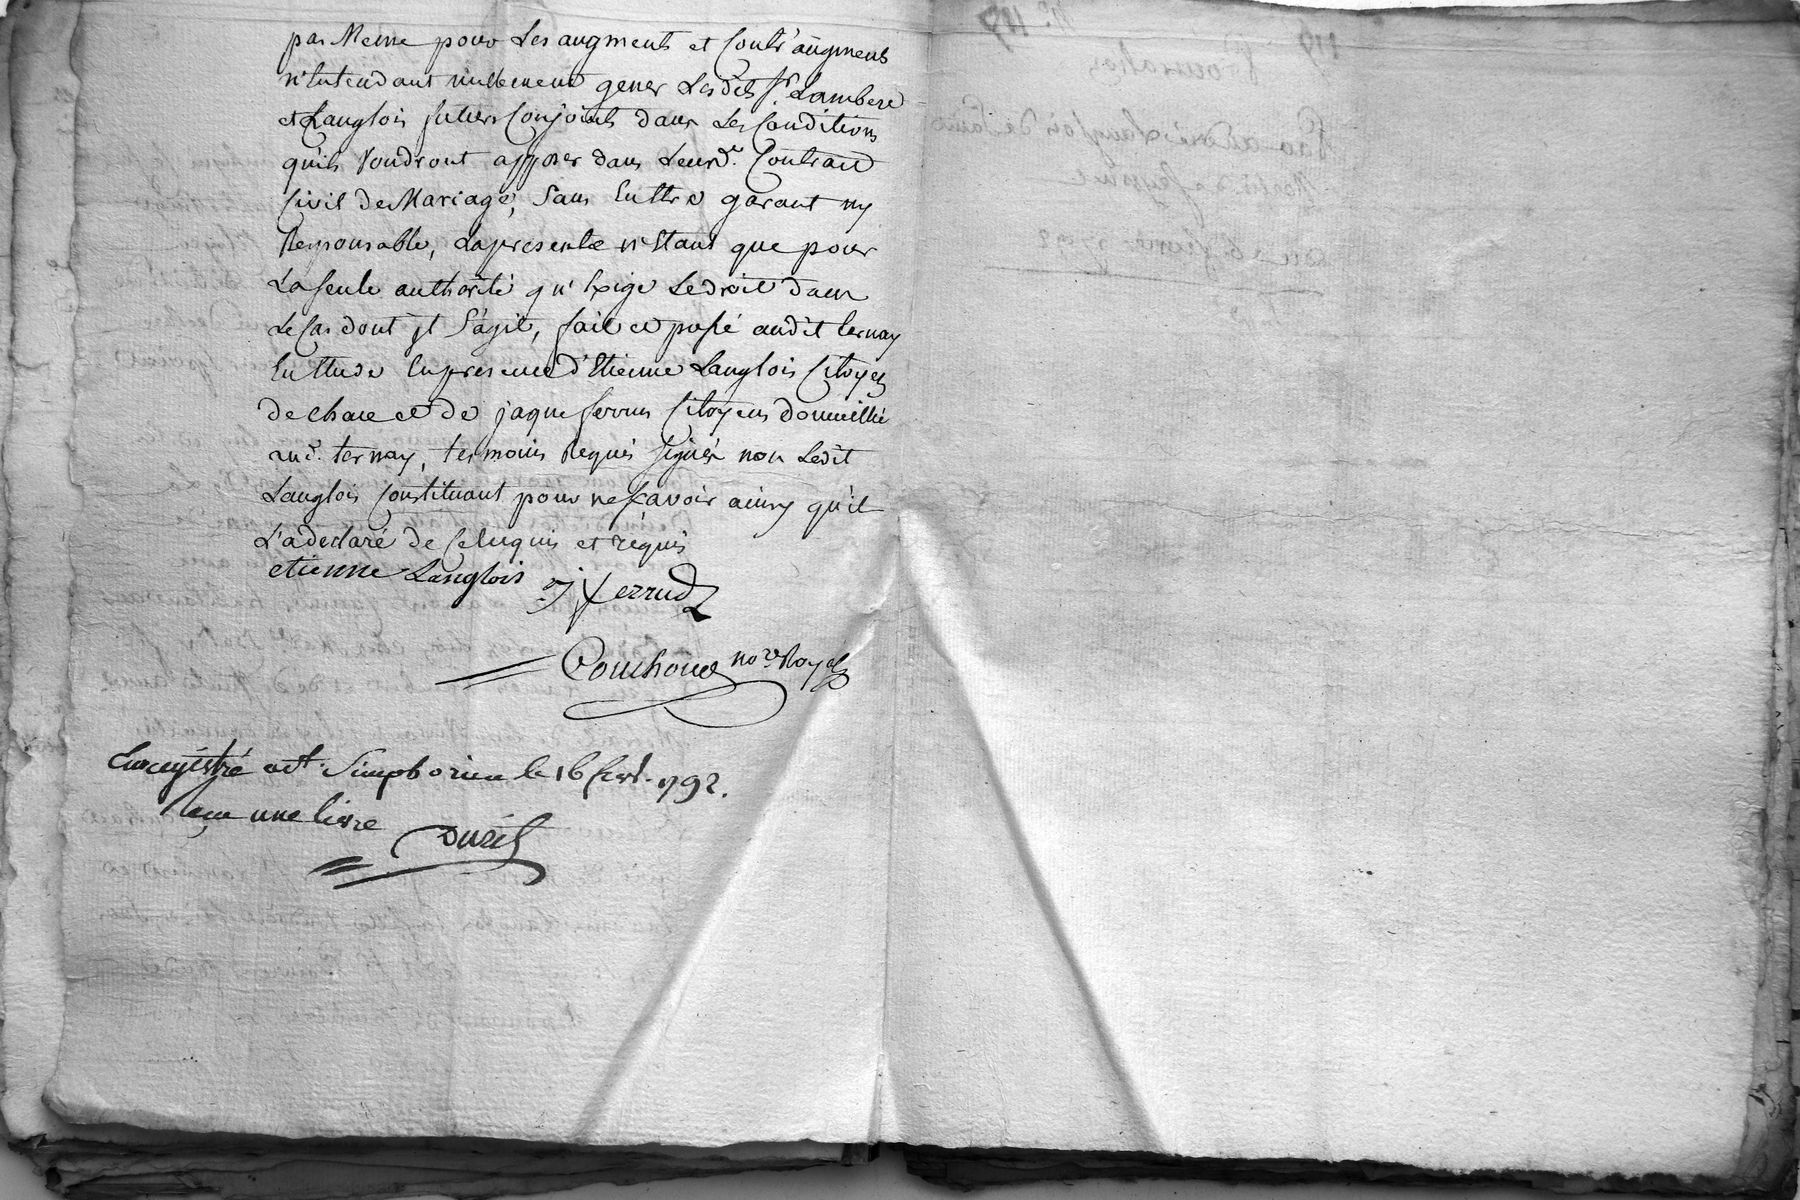 pas Meme pour Les augments et Contr'augments
n'Entendant nullement gener Lesdits Sr. Lambert
et Langlois futurs Conjoints dans Les Conditions
qu'ils Voudront apposer dans Leurd. Contract
Civil de Mariage, Sans Entrer garant ny
Responsable, La presente n'Etant que pour
La seule authorité qu'Exige Le droit dans
Le Cas dont jl S'agit, fait et passé audit ternay
Ettude En presence d'Etienne Langlois Citoyen
de et de jaque ferrus Citoyens domicillié
aud. ternay, temoins Requis signés non Ledit
Langlois Constituant pour ne sçavoir ainsy qu'il
L'a declaré de Ce Enquis et requis
etienne Langlois j ferrud
Couchoud nore Royal
Enregistré a St. Simphorien le 16 fevr. 1792.
Reçu une livre